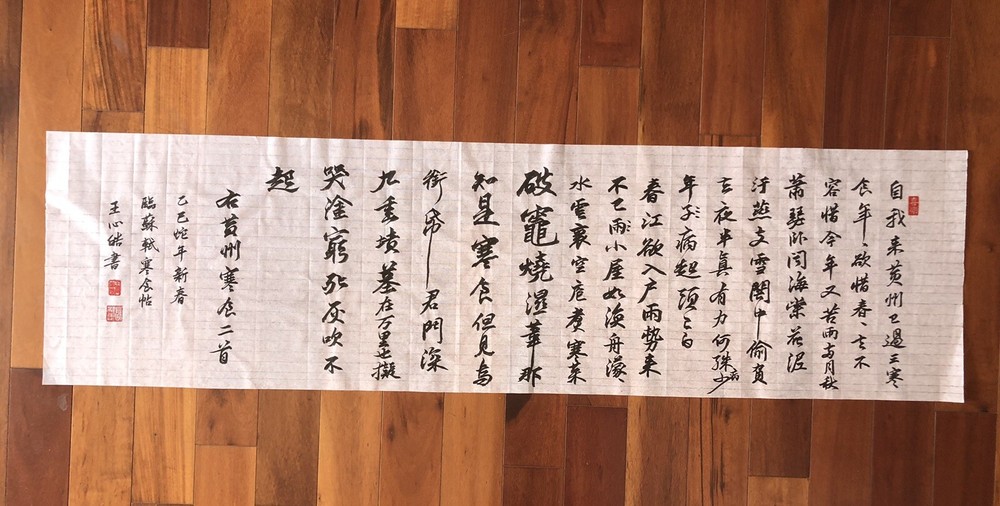 自我来黄州已過三寒
食年、欲惜春、去不
容惜今年又苦雨兩月秋
蕭瑟卧聞海棠花泥
汙燕支雪闇中偷負
去夜半真有力何殊病少
年子病起頭已白
春江欲入户雨勢来
不已雨小屋如漁舟濛
水雲裏空庖煮寒菜
破竈燒濕葦那
知是寒食但見烏
銜帋君門深
九重墳墓在万里也擬
哭塗窮死灰吹不
起
右黄州寒食二首
乙巳蛇年新春
臨蘇軾寒食帖
王心皓書